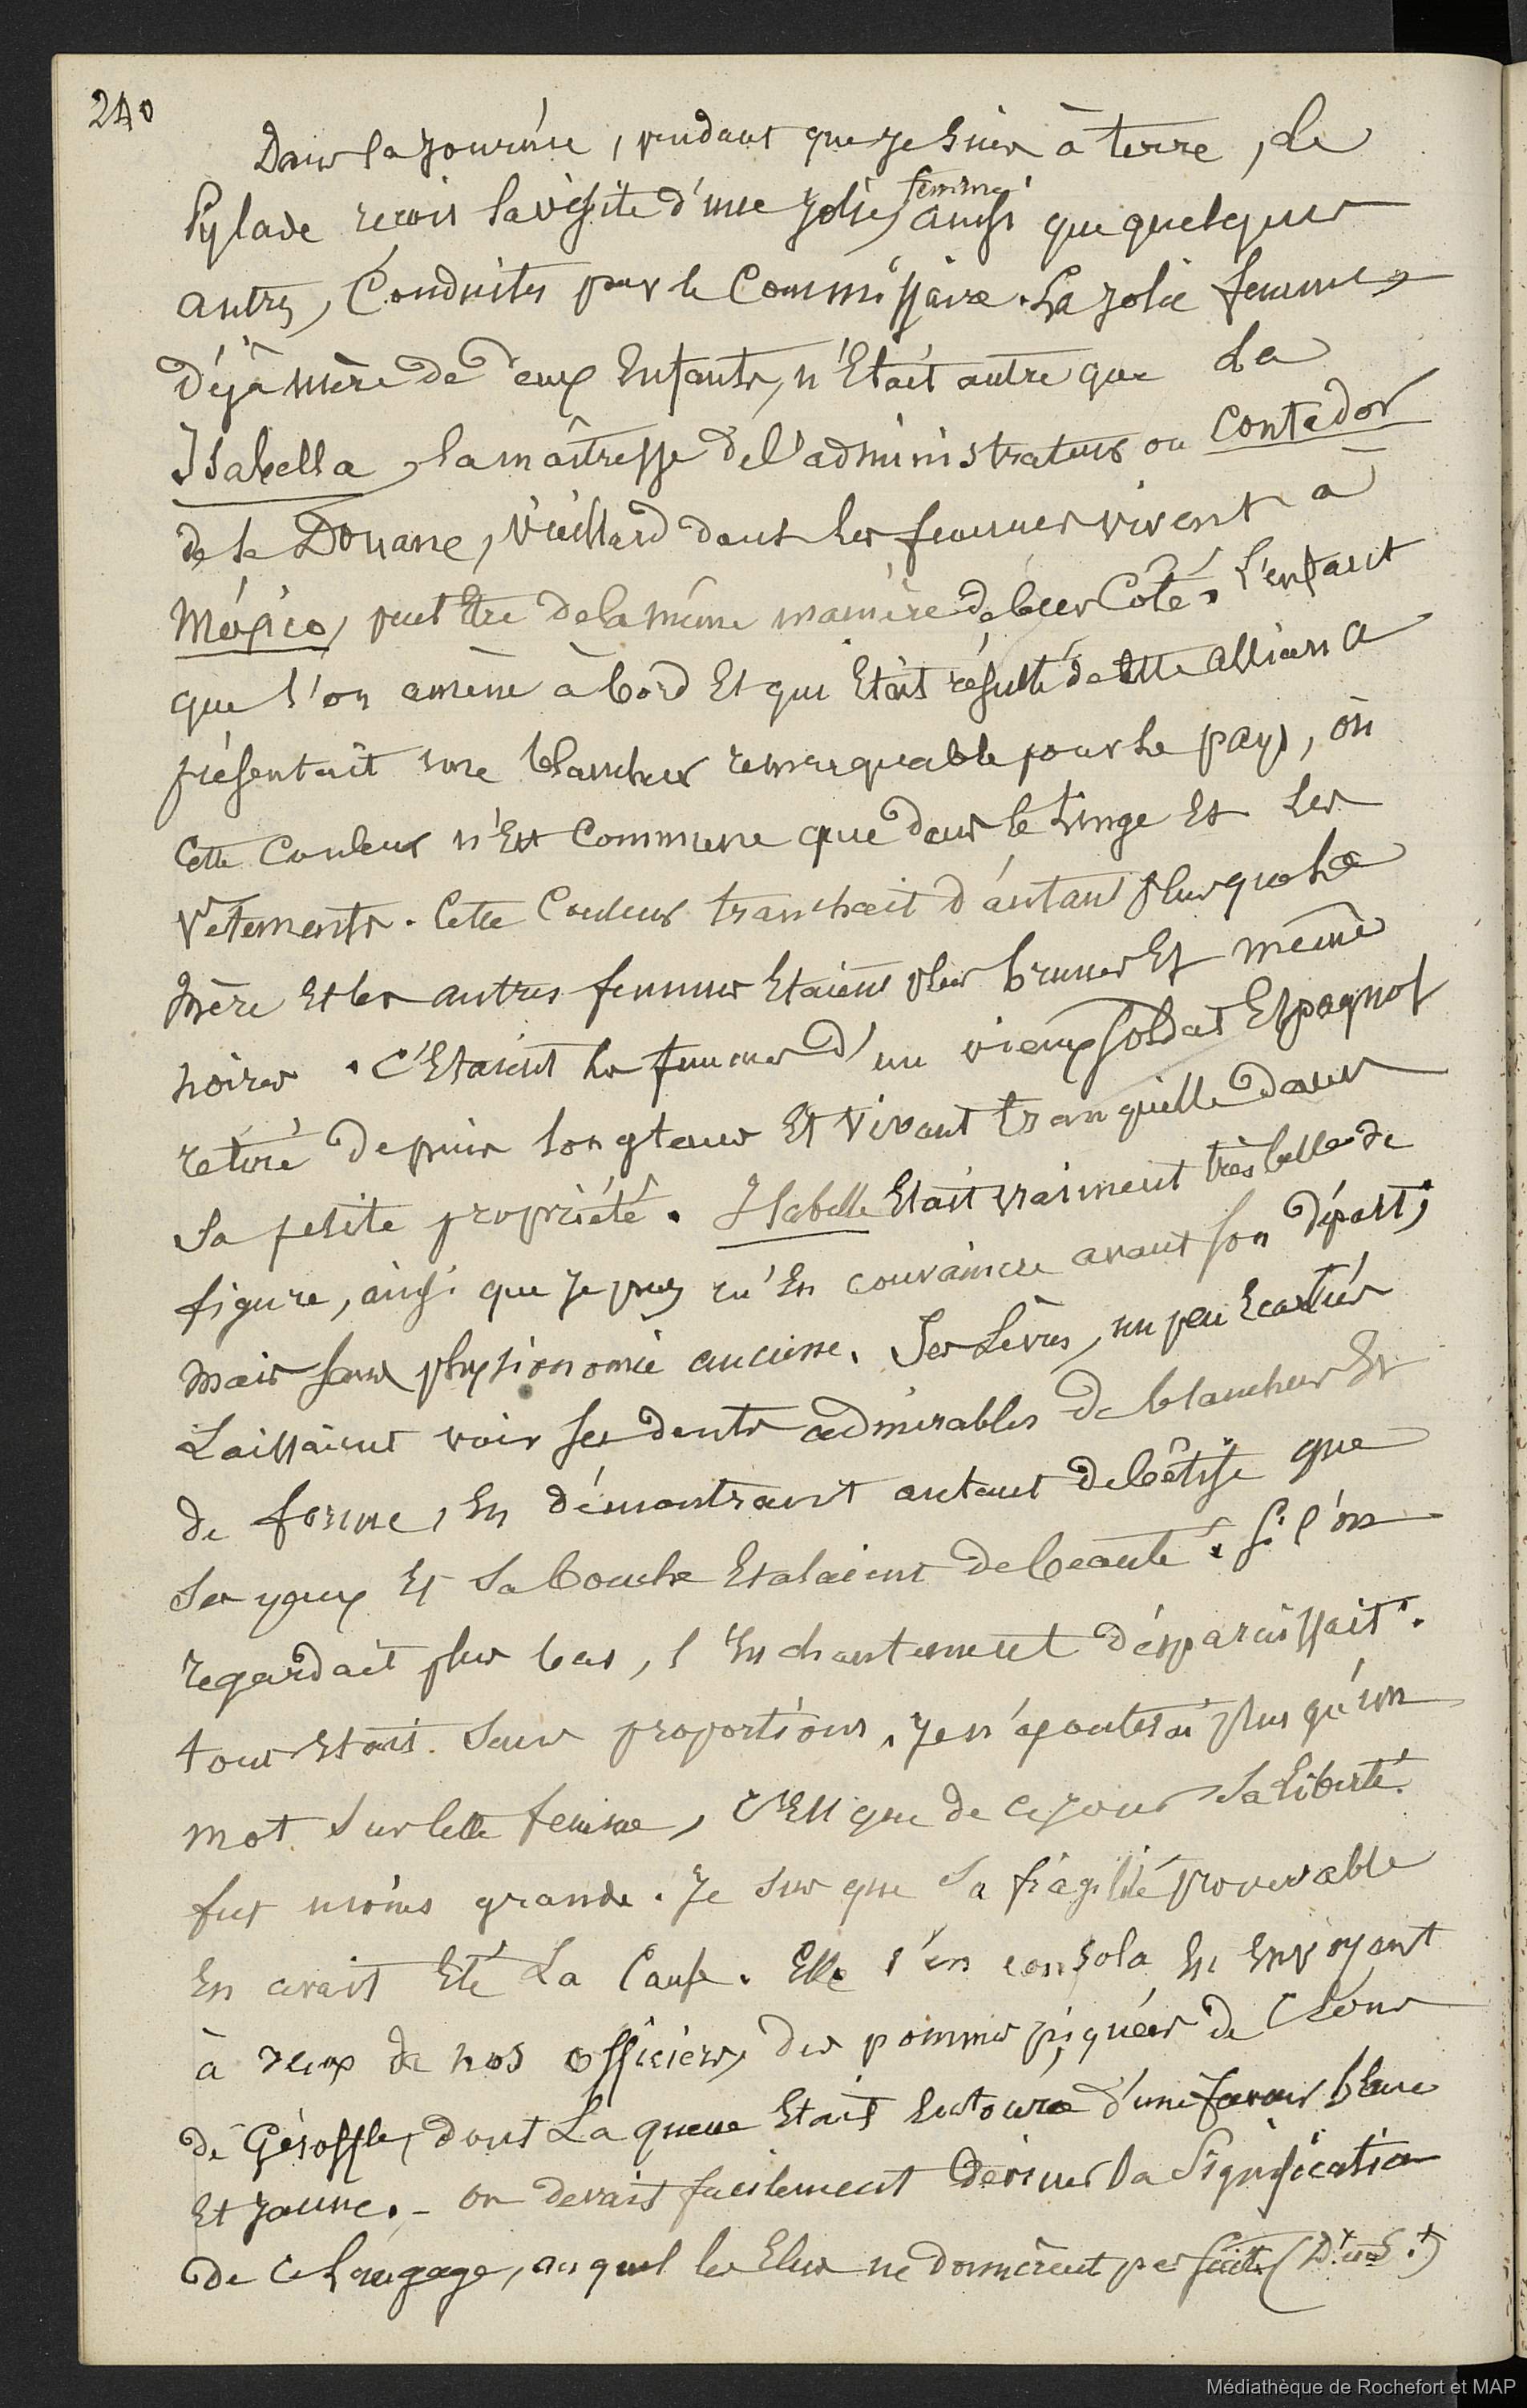 240
Dans la journée, pendant que je suis à terre, Le
Pylade reçoit la visite d'une jolie femme ainsi que quelques
autres, Conduites par le Commissaire. La jolie femme,
déjà mère de deux Enfants, n'Etait autre que La
Isabella, la maîtresse de l'administrateur ou Contador
de la Douane, vieillard dont les femmes vivent à
México, peut Etre de la même manière de leur Coté. L'enfant
que l'on amène à bord Et qui Etait résulté de cette alliance
présentait une blancheur remarquable pour le pays, où
Cette Couleur n'Est Commune que dans le Linge Et Les
Vêtements. Cette Couleur tranchait d'autant plus que la
Mère Et les autres femmes Etaient plus brunes Et même
noires. C'Etaient les femmes d'un vieux soldat Espagnol
retiré depuis longtems Et vivant tranquille dans
Sa petite propriété. Isabelle Etait vraiment très belle de
figure, ainsi que je pus m'En convaincre avant son départ;
Mais sans physionomie aucune. Ses Lèvres, un peu Ecartées
Laissaient voir ses dents admirables de blancheur Et
de forme, En démontrant autant de bêtise que
Ses yeux Et Sa bouche Etalaient de beauté. Si l'on
regardait plus bas, l'Enchantement disparaissait.
tout Etait Sans proportions. Je n'ajouterai plus qu'un
mot Sur Cette femme, C'Est que de ce jour Sa Liberté
fut moins grande. Je Sus que Sa fragilité prouvable
En avait Eté La Cause. Elle s'en consola En Envoyant
à deux de nos officiers, des pommes piquées de Clous
de Gérofle, dont La queue Etait Entourée d'une faveur bleue
Et jaune. - on devait facilement deviner La Signification
de Ce Langage, au quel les Elus ne donnèrent pas suite